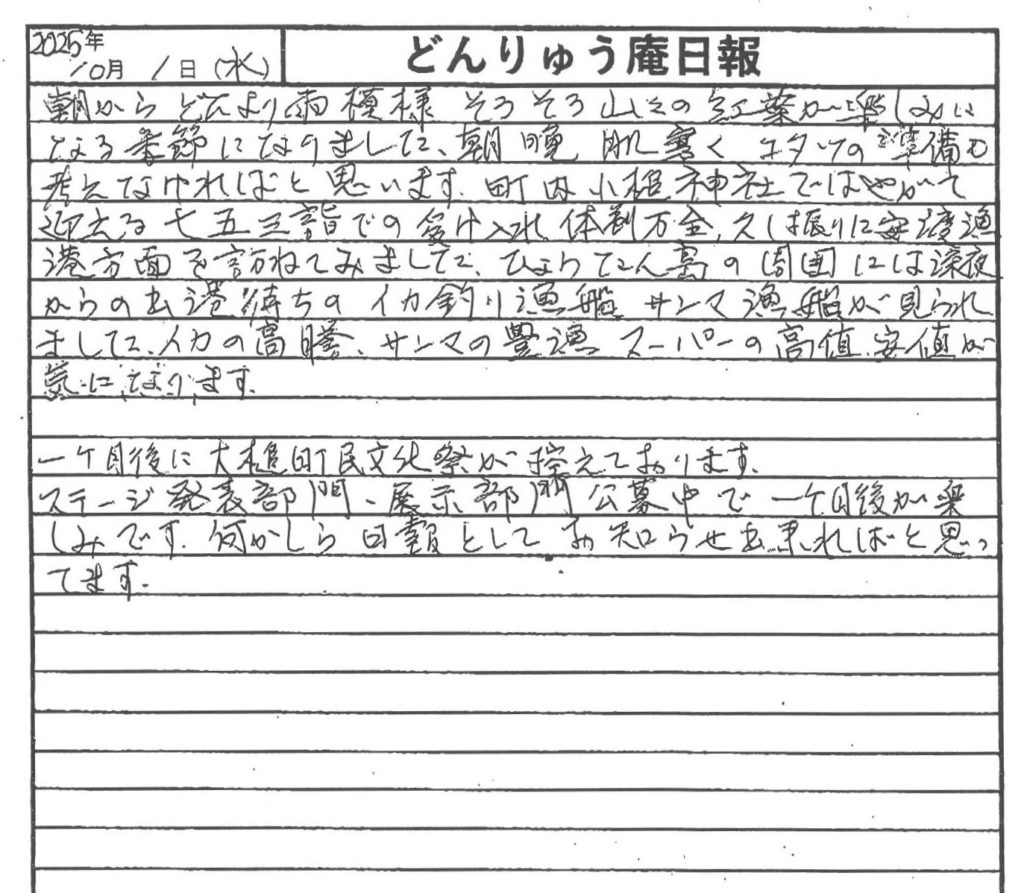 2025年
10月 1日 (水)
どんりゅう庵日報
朝から どんより雨模様 そろそろ山々の紅葉が楽しみに
なる季節になりました、朝晩 肌寒く コタツの準備も
考えてなければと思います. 町内小槌神社ではやがて
迎える七五三詣での受け入れ体制万全, 久し振りに安渡漁
港方面を訪ねてみました、ひょうたん島の周囲には深夜
からの出港待ちのイカ釣り漁船 サンマ漁船が見られ
ました、イカの高騰、サンマの豊漁 スーパーの高値、安値が
気になります.
一ケ月後に大槌町民文化祭が控えております.
ステージ発表部門、展示部門公募中で 一ケ月後が楽
しみです. 何かしら日報として お知らせ出来ればと思っ
てます.